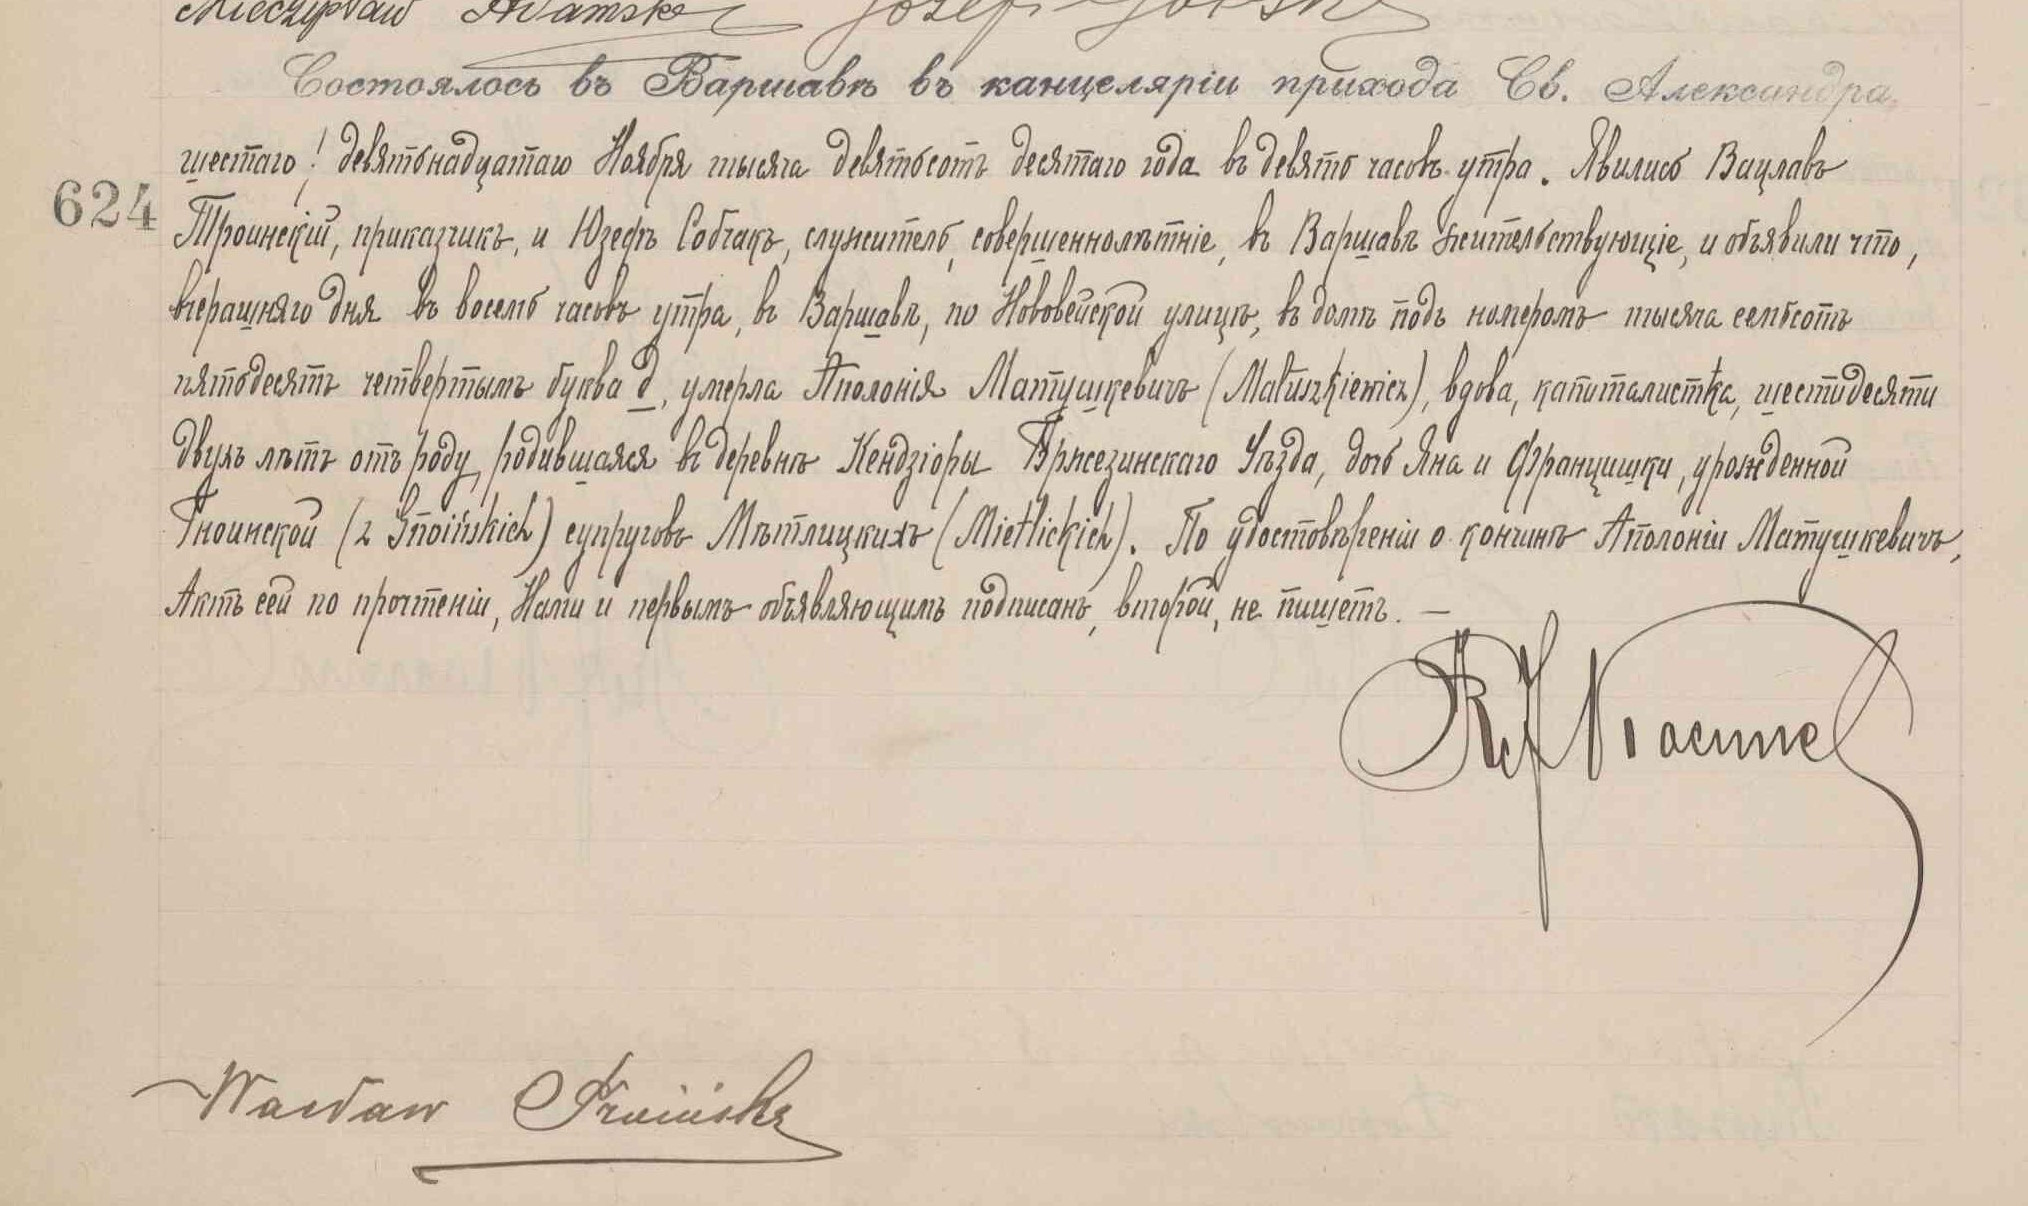 Mieczysław Adamski Józef Górski
Состоялось въ Варшавѣ въ канцеляріи прихода Св. Александра,
шестаго / девятьнадцатаго Ноября тысяча девятьсотъ десятаго года въ девять часовъ утра. Явились Вацлавъ
624 Троинскій, приказчикъ, и Юзефъ Собчакъ, служитель, совершеннолѣтніе, въ Варшавѣ жительствующіе, и объявили что,
вчерашняго дня въ восемь часовъ утра, въ Варшавѣ, по Нововейской улицѣ, въ домѣ подъ номеромъ тысяча семьсотъ
пятьдесятъ четвертымъ буква d, умерла Аполонія Матушкевичъ (Matuszkiewicz), вдова, капиталистка, шестидесяти
двухъ лѣтъ отъ роду, родившаяся въ деревнѣ Кендзіоры Бржезинскаго Уѣзда, дочь Яна и Францишки, урожденной
Гноинской (z Gnoińskich) супруговъ Мѣтлицкихъ (Mietlickich). По удостовѣреніи о кончинѣ Аполоніи Матушкевичъ,
Актъ сей по прочтеніи, Нами и первымъ объявляющимъ подписанъ, второй, не пишетъ. —
Wacław Troiński